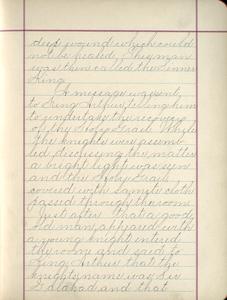 deep wound which could
not be healed. The man
was then called the Sinner
King.
A message was sent
to King Arthur, telling him
to undertake the recovery
of the Holy Grail. While
the knights were assem-
bled, discussing the matter
a bright light was seen
and the Holy Grail
covered with samite cloth
passed through the room.
Just after that a good
old man, appeared with
a young knight entered
the room and said to
King Arthur that the
knights name was Sir
Galahad and that